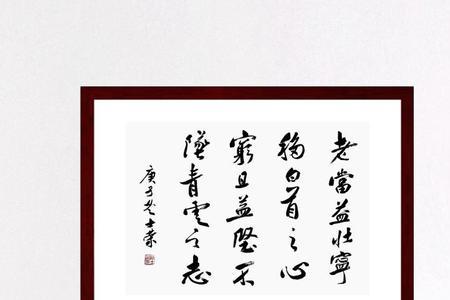 老當益壯寧
移白首之心
窮且益堅不
墜青雲之志
庚子士榮